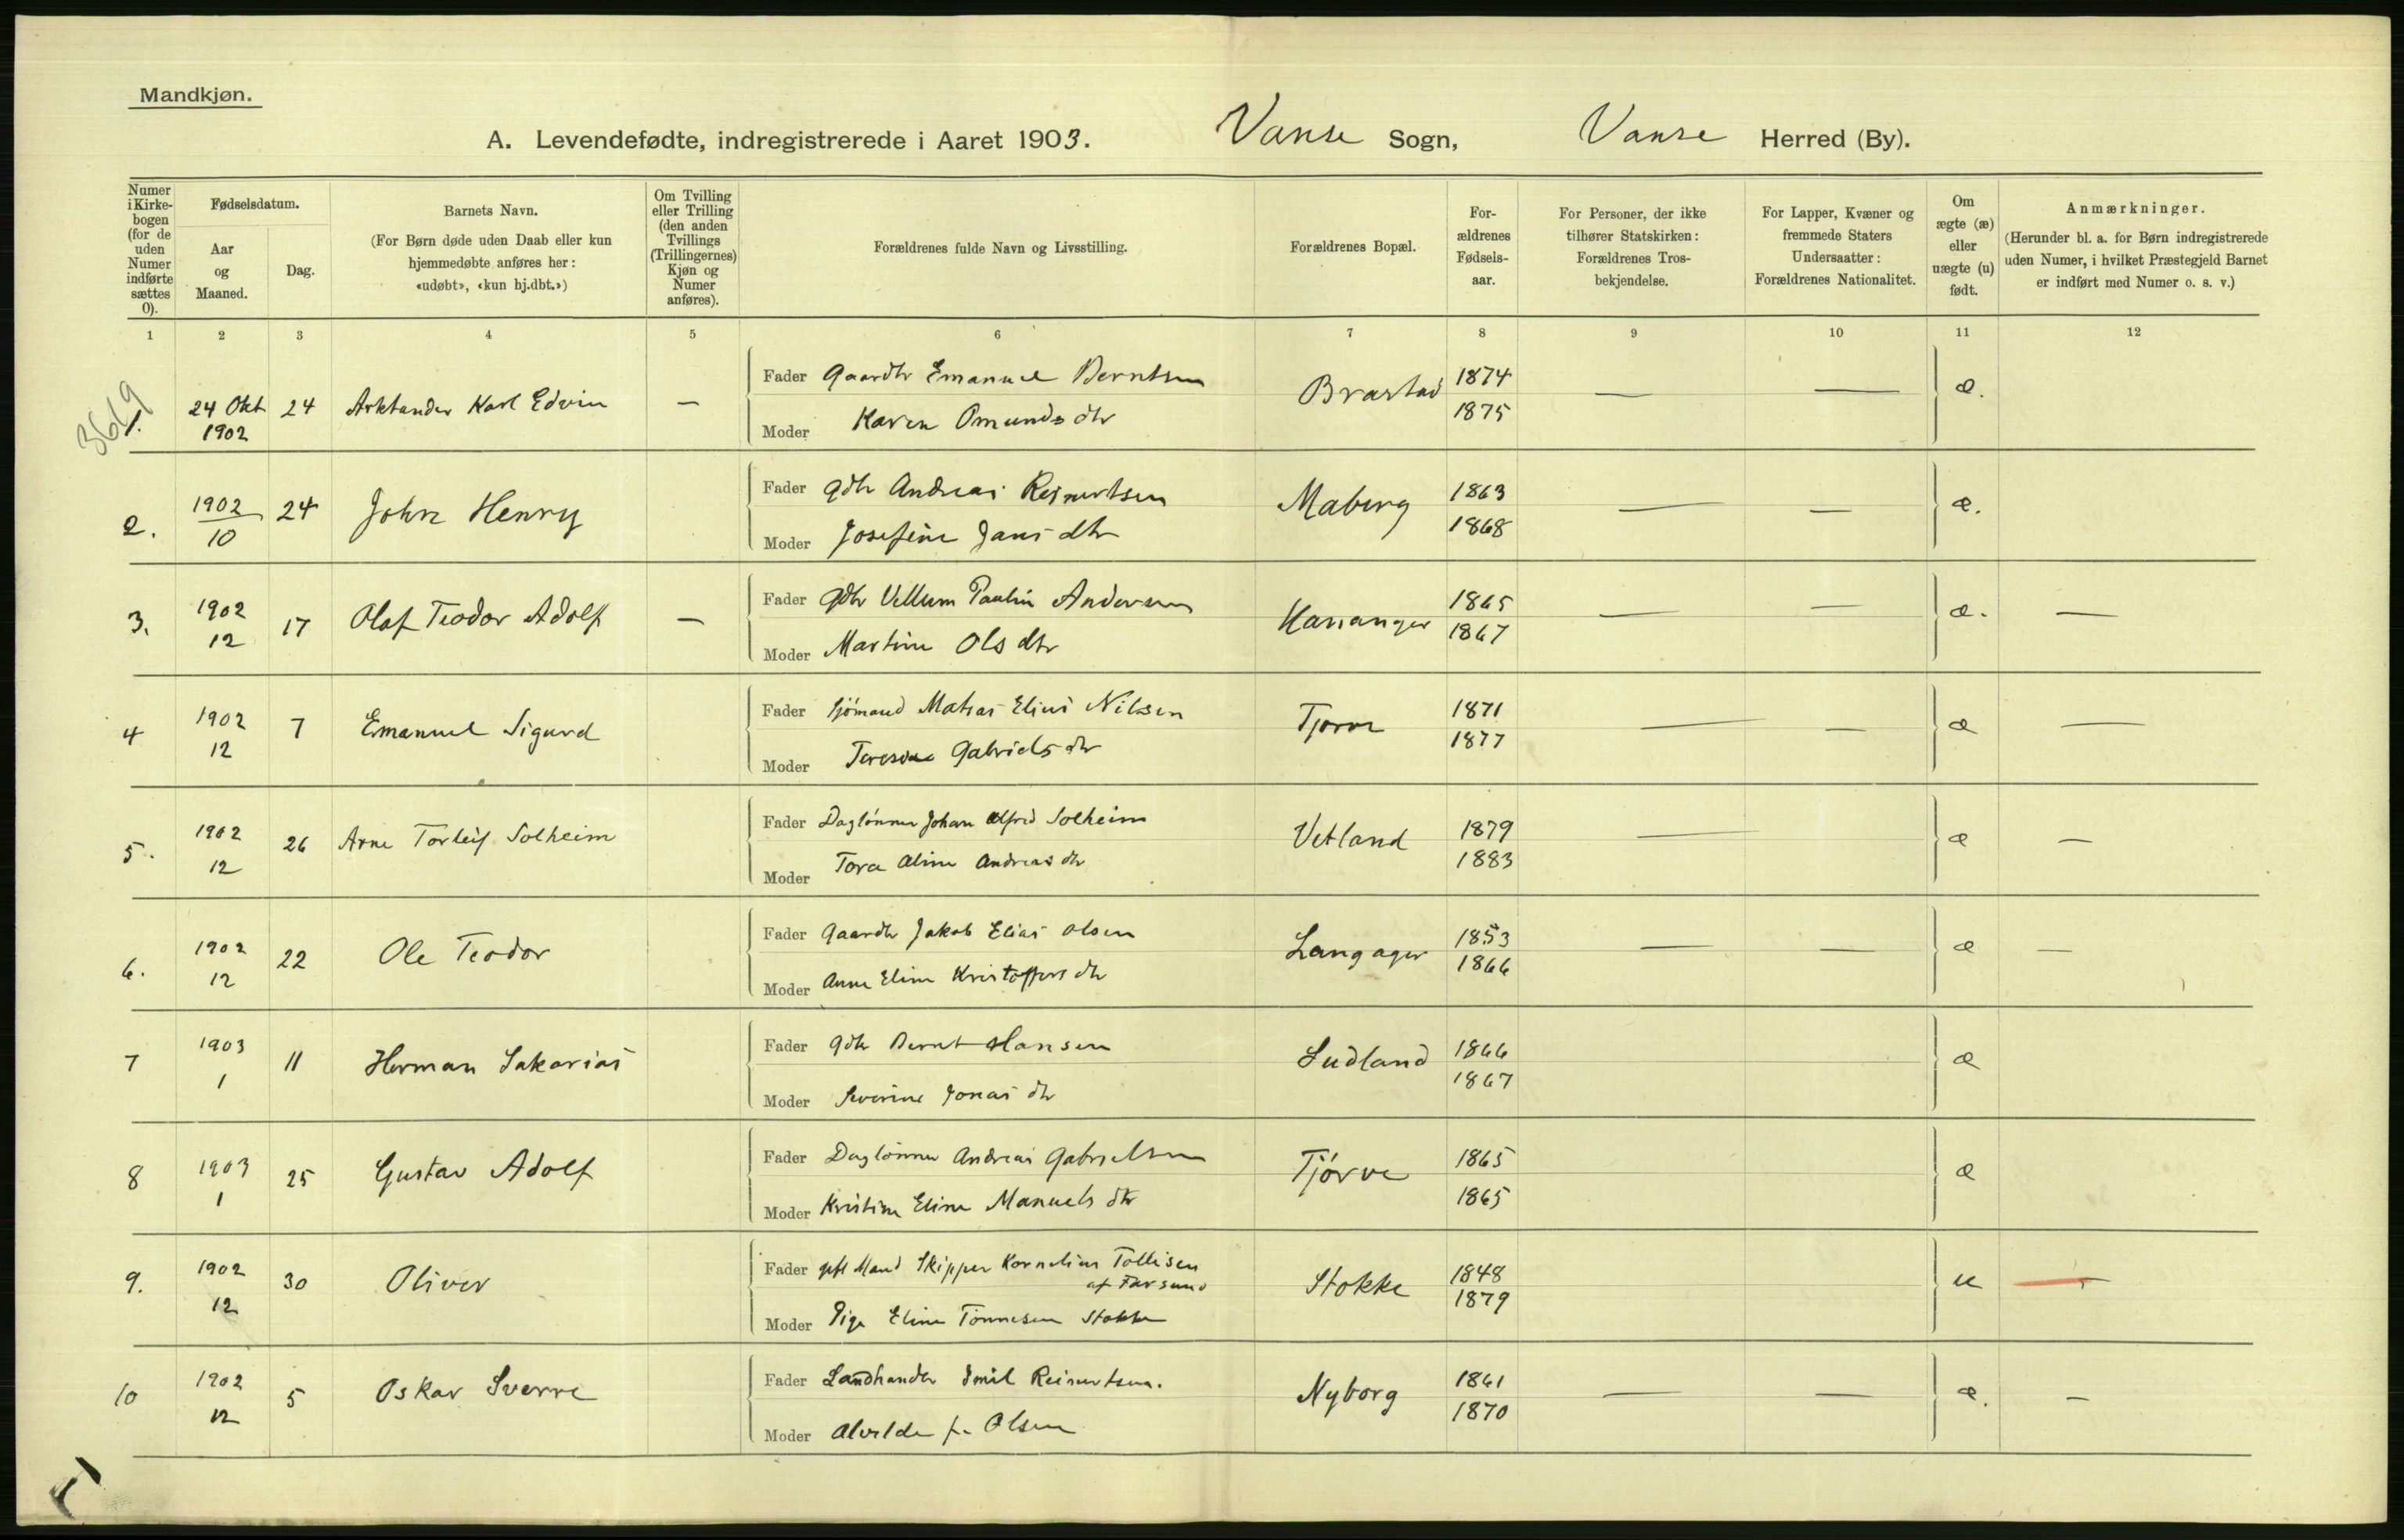 Mandkjøn.
A. Levendefødte, indregistrerede i Aaret 1903. Vanse Sogn, Vanse Herred (By).
Numer i Kirke-bogen (for de uden Numer indførte sættes 0).
Fødselsdatum.
Aar og Maaned.
Dag.
Barnets Navn.
(For Børn døde uden Daab eller kun hjemmedøbte anføres her: «udøbt», «kun hj.dbt.»)
Om Tvilling eller Trilling (den anden Tvillings (Trillingernes) Kjøn og Numer anføres).
Forældrenes fulde Navn og Livsstilling.
Forældrenes Bopæl.
For-ældrenes Fødsels-aar.
For Personer, der ikke tilhører Statskirken: Forældrenes Tros-bekjendelse.
For Lapper, Kvæner og fremmede Staters Undersaatter: Forældrenes Nationalitet.
Om ægte (æ) eller uægte (u) født.
Anmærkninger.
(Herunder bl. a. for Børn indregistrerede uden Numer, i hvilket Præstegjeld Barnet er indført med Numer o. s. v.)
1 2 3 4 5 6 7 8 9 10 11 12
3619
1. 24 Okt 1902 24 Arktander Karl Edvin — Fader Gaardbr Emanuel Berntsen Brastad 1874 — — æ.
Moder Karen Omunds dtr 1875
2. 1902 10 24 John Henry Fader Gdbr Andreas Reinertsen Maberg 1863 — — æ.
Moder Josefine Jans dtr 1868
3. 1902 12 17 Olaf Teodor Adolf — Fader Gdbr Vellum Paulin Andersen Hananger 1865 — — æ. —
Moder Martine Ols dtr 1867
4 1902 12 7 Emanuel Sigurd Fader Sjømand Matias Elius Nilsen Tjorve 1871 — — æ —
Moder Teresine Gabriels dtr 1877
5. 1902 12 26 Arne Torleif Solheim Fader Daglønner Johan Alfred Solheim Vetland 1879 — æ —
Moder Tora Aline Andreas dtr 1883
6. 1902 12 22 Ole Teodor Fader Gaardbr Jakob Elias Olsen Langager 1853 — — æ —
Moder Anne Eline Kristoffers dtr 1866
7 1903 1 11 Herman Sakarias Fader Gdbr Bernt Hansen Ludland 1866 æ
Moder Severine Jonas dtr 1867
8 1903 1 25 Gustav Adolf Fader Daglønner Andreas Gabrielsen Tjørve 1865 æ
Moder Kristine Eline Manuels dtr 1865
9. 1902 12 30 Oliver Fader gift Mand Skipper Kornelius Tollisen af Farsund Stokke 1848 u —
Moder Pige Eline Tønnesen Stokke 1879
10 1902 12 5 Oskar Sverre Fader Landhandler Emil Reinertsen. Nyborg 1861 — — æ. —
Moder Alvilde f. Olsen 1870